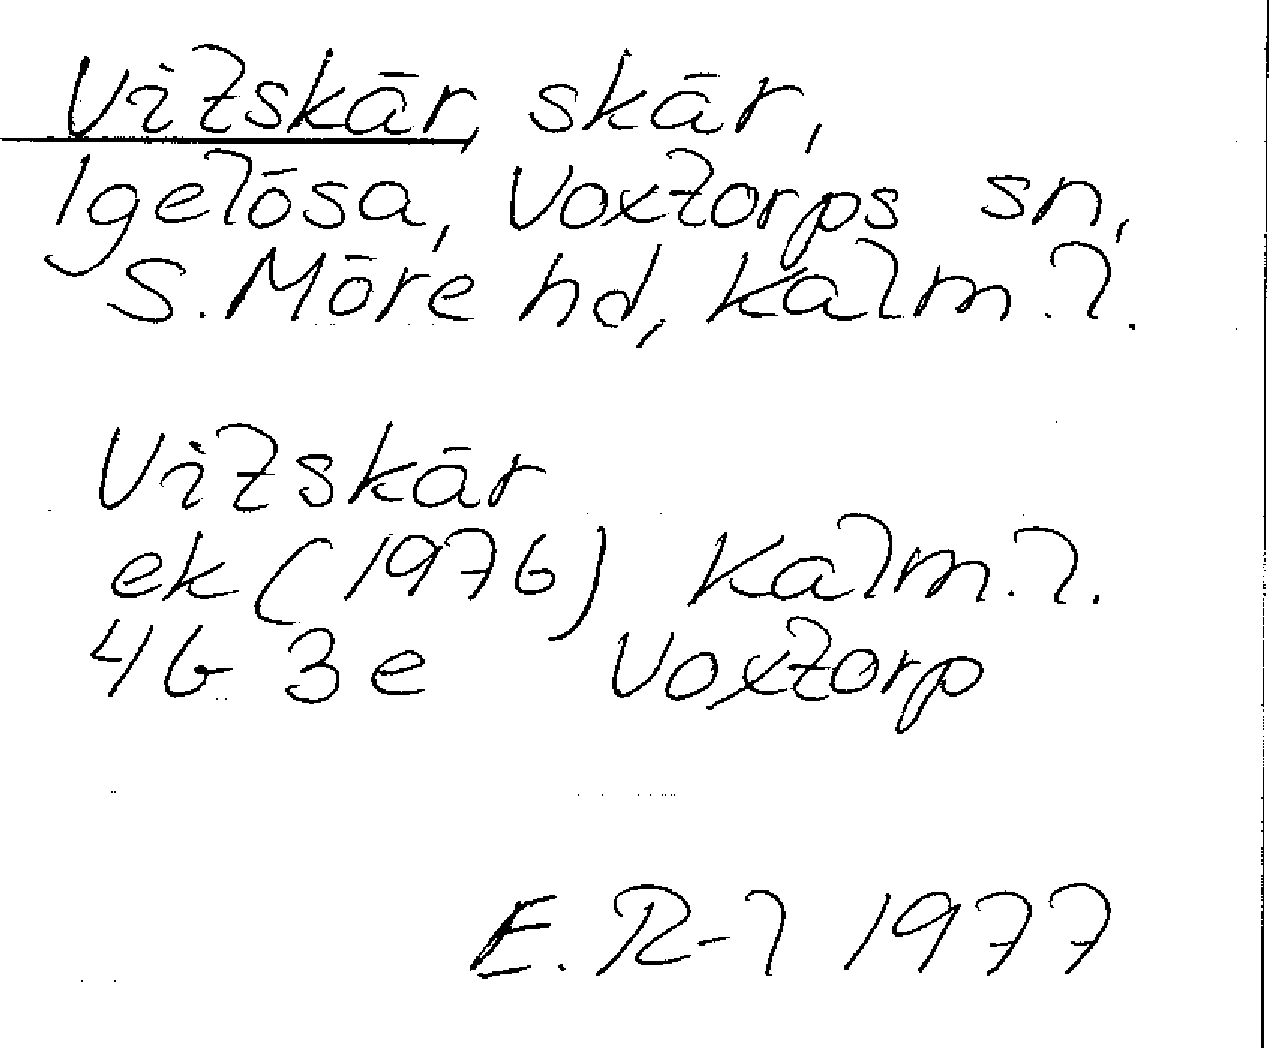 Vitskär, skär,
Igelösa, Voxtorps sn,
S. Möre hd, Kalm. l.
Vitskär
ek (1976) Kalm. l.
4G 3e Voxtorp
E. R-l 1977